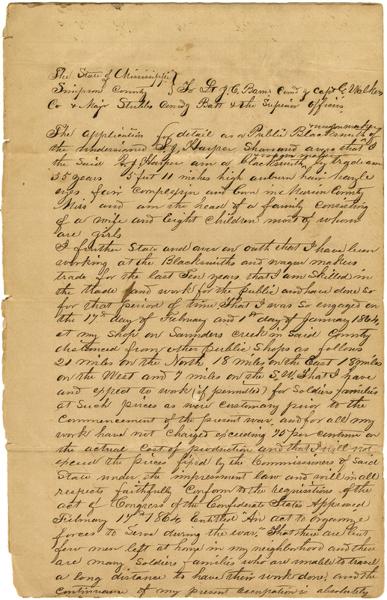 The State of Mississippi
Simpson County } To Lt J. C. Bams Comdg Capt G Walker
Co & Major Stubbs Comdg Batt & the Superior Officers
wagon maker
The application for detail as a Public Blacksmith of
the undersigned Harper Shows and argues that I
wagon maker
the Said Harper am a Blacksmith by trade am
35 years 5 feet 11 inches high auburn hair hazle
eyes fair complexion and born in Marion County
Miss and am the head of a family consisting
of a wife and eight children most of whom
are girls
I further State and aver on oath that I have been
working at the Blacksmiths and wagon makers
trade for the last Ten years that I am Skilled in
the trade and work for the public and have done so
for that period of time That I was So engaged on
the 17th day of Febuary and 1st day of January 1864
at my Shop on Saunders Creek in Said County
distanced from other public Shops as follows
21 miles on the North 18 miles on the East 18 miles
on the West and 7 miles on the S. W. That I have
and expect to work (if permitted) for Soldiers families
at Such prices as were customary prior to the
Commencement of the present war, and for all my
work have not Charged exceeding 75 per centum on
the actual Cost of production and that I will not
exceed the prices fixed by the Commissioners of Said
State under the impressment law and will in all
respects faithfully Conform to the requisitions of the
act of Congress of the Confederate States Approved
Febuary 17th 1864 Entitled An act to organize
forces to Serve during the war, That there are but
few men left at home in my neighborhood and there
are many Soldiers families who are unable to travel
a long distance to have their work done, and the
continuance of my present occupation is absolutely